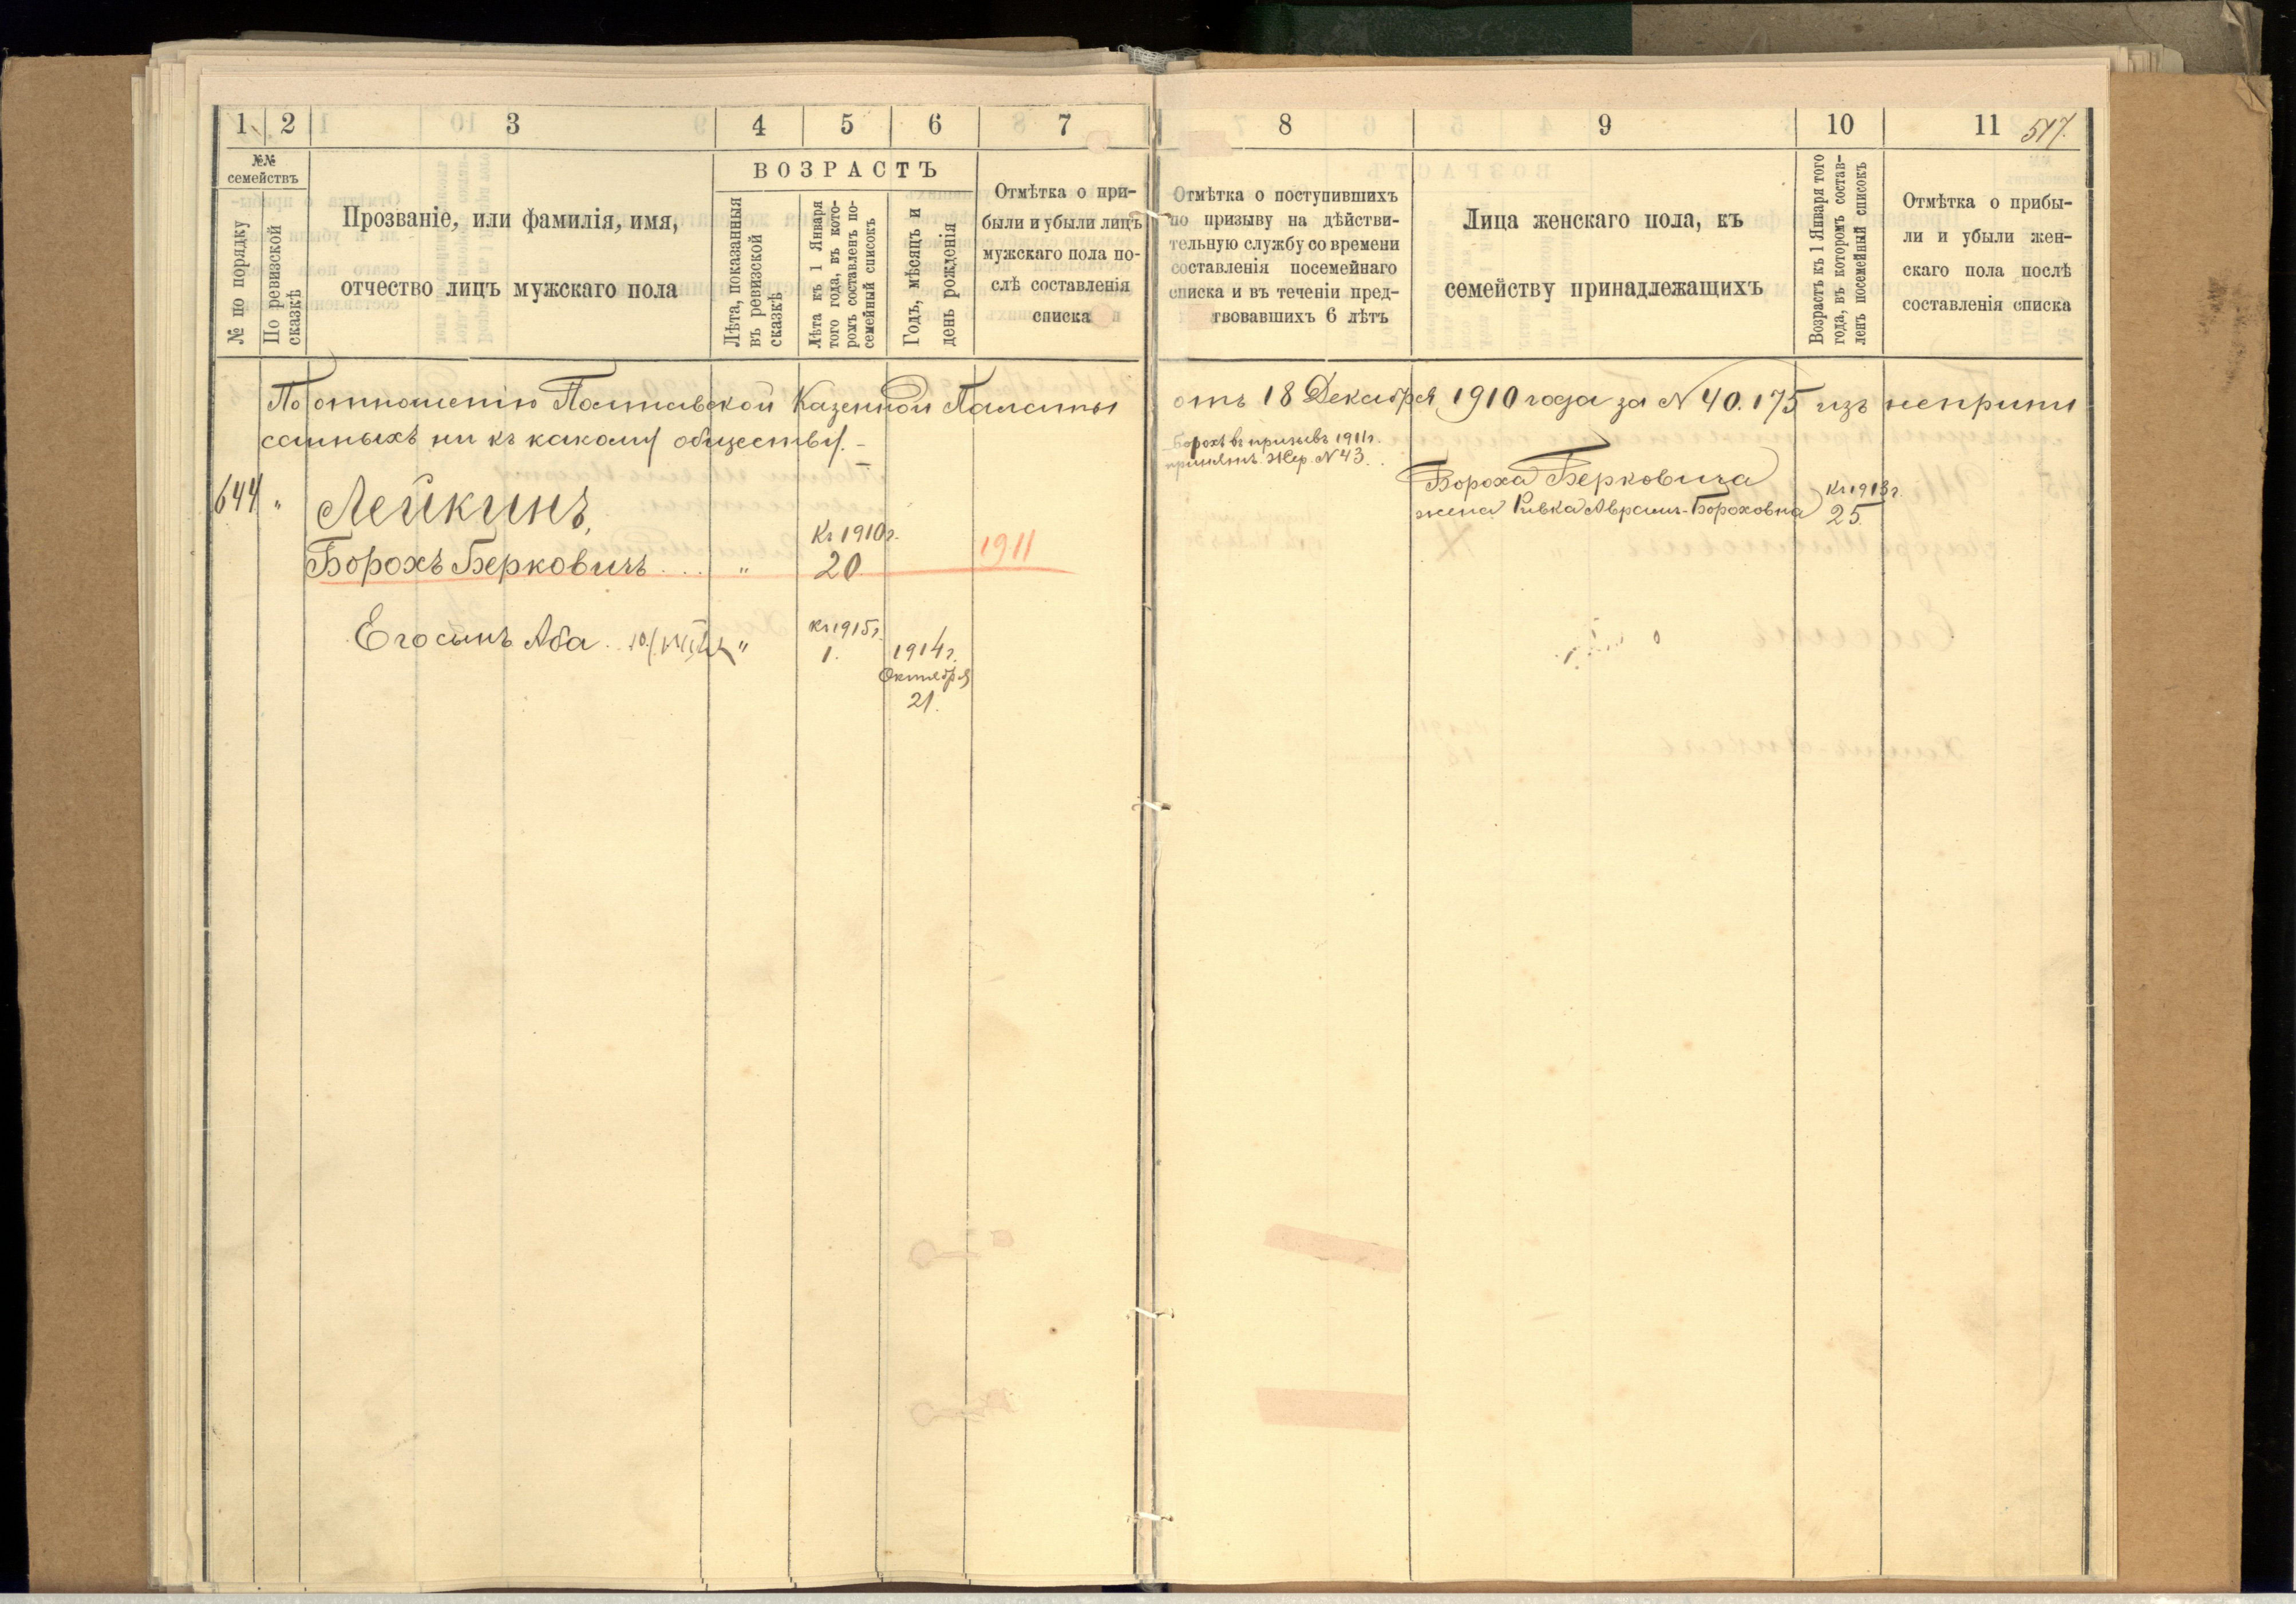 1 2 3 4 5 6 7
№№ семействъ
№ по порядку
По ревизской сказкѣ
Прозваніе, или фамилія, имя,
отчество лицъ мужскаго пола
ВОЗРАСТЪ
Лѣта, показанныя
въ ревизской
сказкѣ
Лѣта къ 1 Января
того года, въ кото-
ромъ составленъ по-
семейный списокъ
Годъ, мѣсяцъ и
день рожденія
Отмѣтка о при-
были и убыли лицъ
мужскаго пола по-
слѣ составленія
списка
8 9 10 11 517.
Отмѣтка о поступившихъ
по призыву на дѣйстви-
тельную службу со времени
составленія посемейнаго
списка и въ теченіи пред-
твовавшихъ 6 лѣтъ
Лица женскаго пола, къ
семейству принадлежащихъ
Возрастъ къ 1 Января того
года, въ которомъ состав-
ленъ посемейный списокъ
Отмѣтка о прибы-
ли и убыли жен-
скаго пола послѣ
составленія списка
По отношенію Полтавской Казенной Палаты отъ 18 Декабря 1910 года за № 40.175 изъ неприпи
санныхъ ни къ какому обществу. –
644 " Лейкинъ,
Борохъ Берковичъ . . . " Къ 1910 г. 20 1911
Его сынъ Аба . . " къ 1915 г. 1. 1914 г.
Октября
21.
Борохъ въ призывъ 1911 г.
принятъ. Жер. № 43.
Бороха Берковича
жена Ривка Аврамъ-Бороховна
Къ 1913 г.
25.